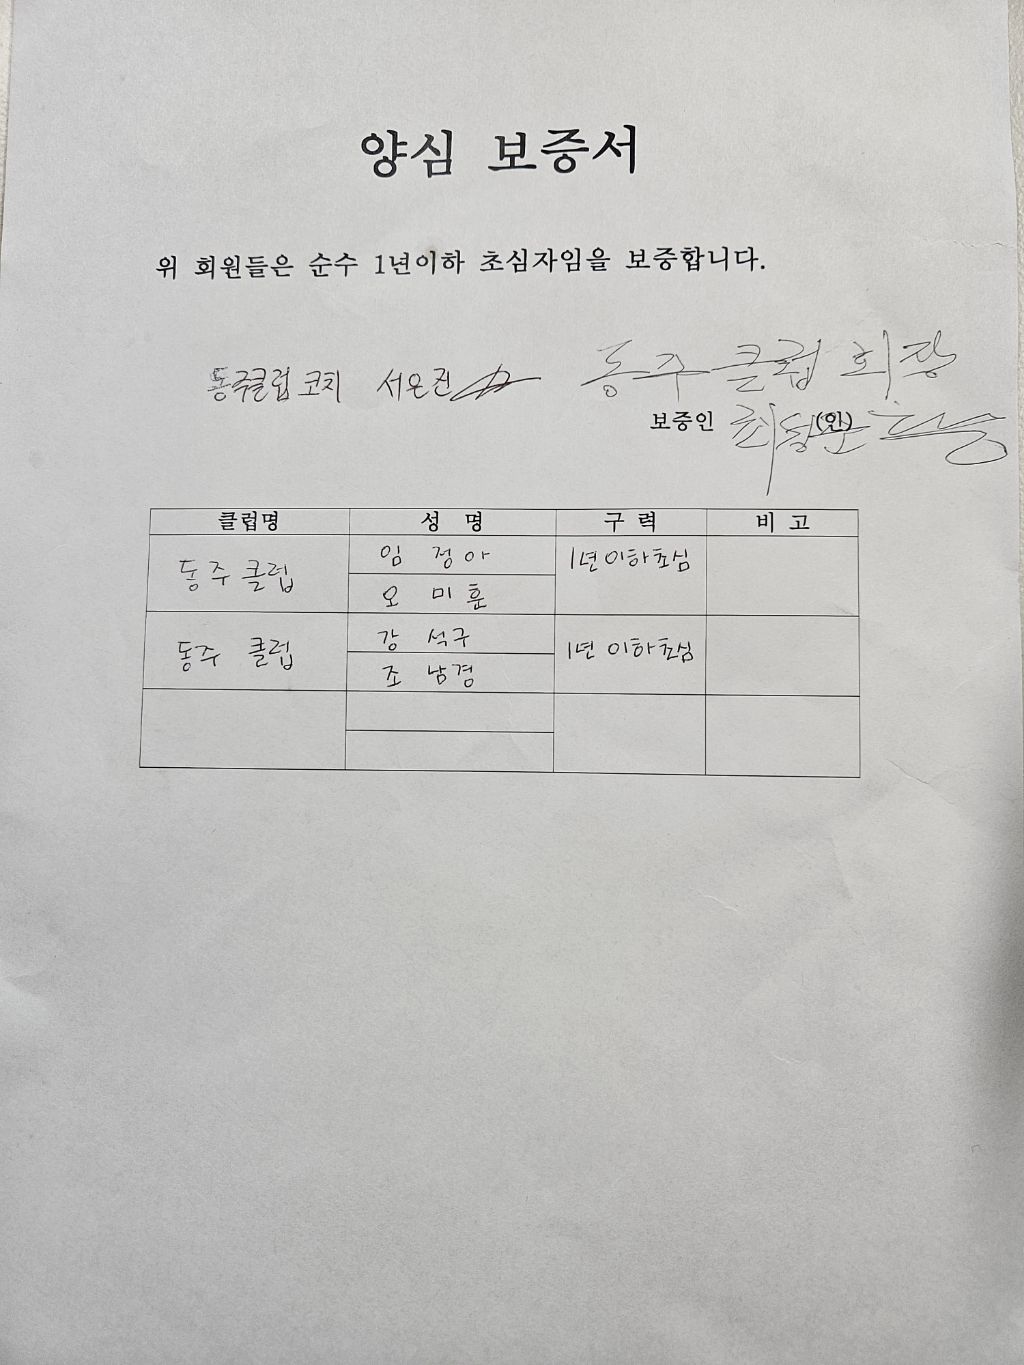 양심 보증서
위 회원들은 순수 1년이하 초심자임을 보중합니다.
동주클럽 회장
동주클럽 코치 서은진
보증인 (인)
클럽명 성 명 구 력 비 고
동주클럽 임 정아 1년이하초심
오 미훈
동주 클럽 강 석구 1년 이하초심
조 남경